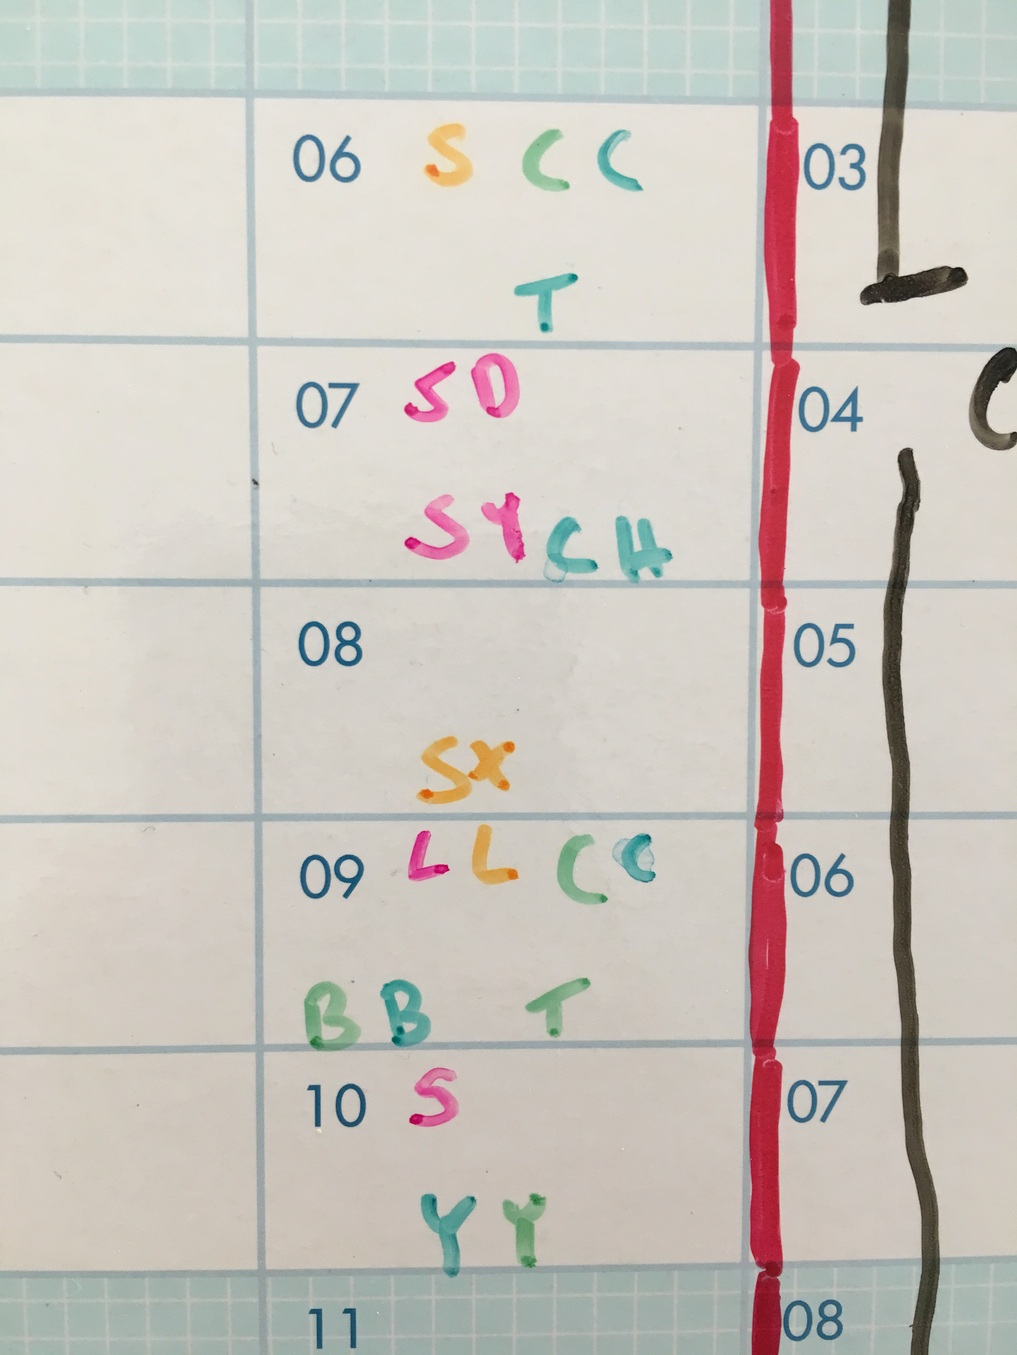 06 S C C
T
07 S D
S Y C H
08
S X
09 L L C C
B B T
10 S
Y Y
11
03
04 C
05
06
07
08